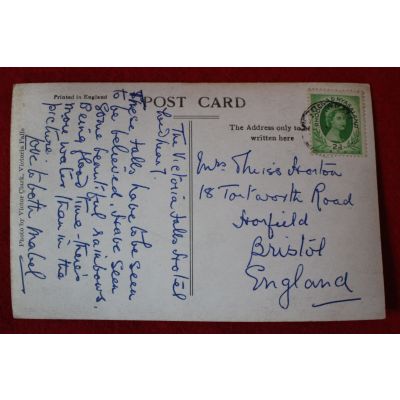 Printed in England
POST CARD
The Address only to be
written here
Photo by Victor Clark, Victoria Falls
The Victoria Falls Hotel
Sunday.
These falls have to be seen
to be believed, have seen
some beautiful rainbows,
Being flood time - theres
more water than in the
picture.
Love to both Mabel
RHODESIA & NYASALAND
2d
Mrs Theiss Horton
18 Tortworth Road
Horfield
Bristol
England